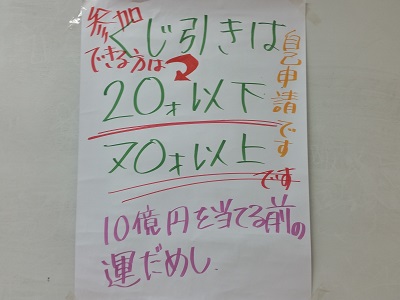 くじ引きは
参加
できる方は
20才以下
70才以上
です
自己申請です
10億円を当てる前の
運だめし